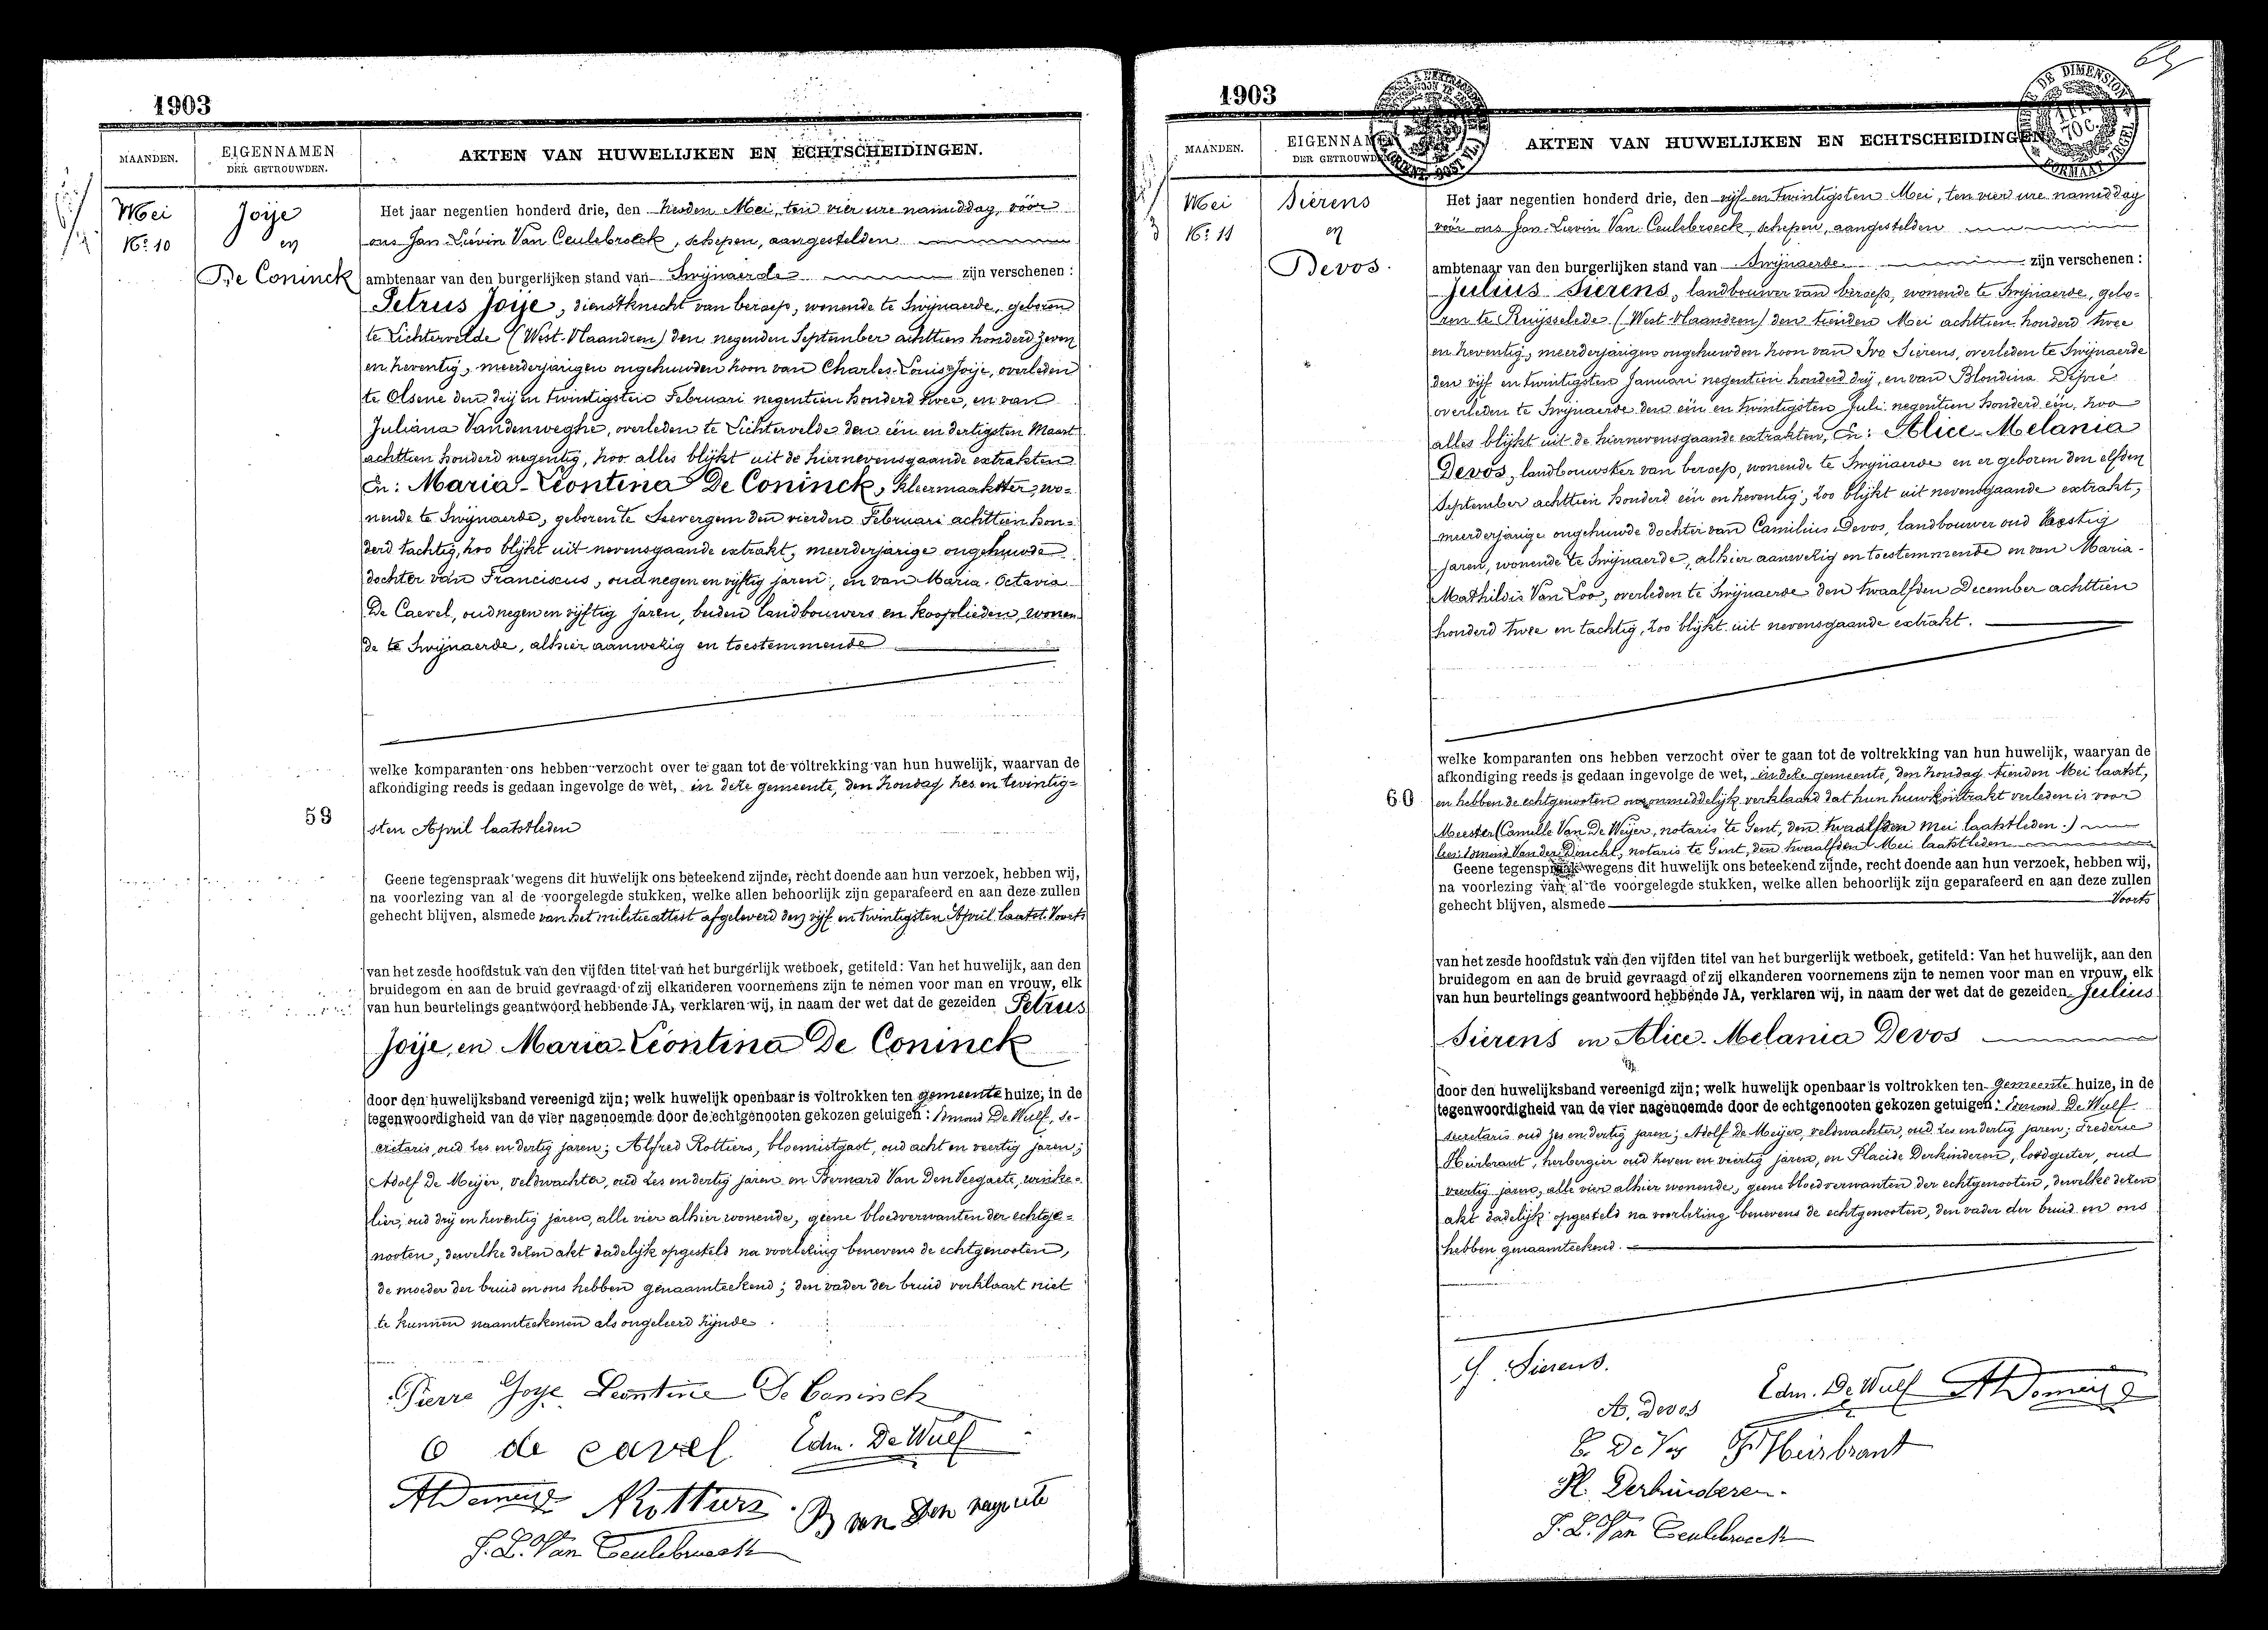 1903
MAANDEN.
EIGENNAMEN
DER GETROUWDEN.
AKTEN VAN HUWELIJKEN EN ECHTSCHEIDINGEN.
Mei
N.º 10
Joije
en
De Coninck
Het jaar negentien honderd drie, den Mei, ten vier ure namiddag, vóór
ons Jan-Liévin Van Ceulebroeck, schepen, aangestelden
ambtenaar van den burgerlijken stand van Swijnaerde zijn verschenen:
Petrus Joije, dienstknecht van beroep, wonende te Swijnaerde, geboren
te Lichtervelde (West-Vlaandren) den negenden September achttien honderd zeven
en zeventig, meerderjarigen ongehuwden zoon van Charles-Louis Joije, overleden
te Olsene den drij en twintigsten Februari negentien honderd twee, en van
Juliana Vandenweghe, overleden te Lichtervelde den één en dertigsten Maart
achttien honderd negentig, zoo alles blijkt uit de hiernevensgaande extrakten
En: Maria-Léontina De Coninck, kleermaakster, wo-
nende te Swijnaerde, geboren te Seevergem den vierden Februari achttien hon-
derd tachtig, zoo blijkt uit nevensgaande extrakt, meerderjarige ongehuwde
dochter van Franciscus, oud negen en vijftig jaren, en van Maria-Octavia
De Caevel, oud negen en vijftig jaren, beiden landbouwers en kooplieden, wonen-
de te Swijnaerde, alhier aanwezig en toestemmende
welke komparanten ons hebben verzocht over te gaan tot de voltrekking van hun huwelijk, waarvan de
afkondiging reeds is gedaan ingevolge de wet, in deze gemeente, den Zondag zes en twintig-
59
sten April laatstleden
Geene tegenspraak wegens dit huwelijk ons beteekend zijnde, recht doende aan hun verzoek, hebben wij,
na voorlezing van al de voorgelegde stukken, welke allen behoorlijk zijn geparafeerd en aan deze zullen
gehecht blijven, alsmede van het militieattest afgeleverd den vijf en twintigsten April laatst. Voorts
van het zesde hoofdstuk van den vijfden titel van het burgerlijk wetboek, getiteld: Van het huwelijk, aan den
bruidegom en aan de bruid gevraagd of zij elkanderen voornemens zijn te nemen voor man en vrouw, elk
van hun beurtelings geantwoord hebbende JA, verklaren wij, in naam der wet dat de gezeiden Petrus
Joije, en Maria-Léontina De Coninck
door den huwelijksband vereenigd zijn; welk huwelijk openbaar is voltrokken ten gemeente huize, in de
tegenwoordigheid van de vier nagenoemde door de echtgenooten gekozen getuigen: Edmond De Wulf, se-
cretaris, oud zes en dertig jaren; Alfred Rottiers, bloemistgast, oud acht en veertig jaren;
Adolf De Meijer, veldwachter, oud zes en dertig jaren en Bernard Van Den Veegaete, winke-
lier, oud drij en zeventig jaren, alle vier alhier wonende, geene bloedverwanten der echtge-
nooten, dewelke dezen akt dadelijk opgesteld na voorlezing benevens de echtgenooten,
de moeder der bruid en ons hebben genaamteekend; den vader der bruid verklaart niet
te kunnen naamteekenen als ongeleerd zijnde.
Pierre Joye Leontine De Coninck
O de cavel Edm. De Wulf
ADemeij ARottiers B van Den
J. L. Van Ceulebroeck
1903
MAANDEN.
EIGENNAMEN
DER GETROUWDEN.
AKTEN VAN HUWELIJKEN EN ECHTSCHEIDINGEN
DE DIMENSION
Mei
N.º 11
Sierens
en
Devos.
Het jaar negentien honderd drie, den vijf en twintigsten Mei, ten vier ure namiddag
vóór ons Jan-Lievin Van Ceulebroeck, schepen, aangestelden
ambtenaar van den burgerlijken stand van Swijnaerde zijn verschenen:
Julius Sierens, landbouwer van beroep, wonende te Swijnaerde, gebo-
ren te Ruijsselede (West-Vlaandren) den tienden Mei achttien honderd twee
en zeventig, meerderjarigen ongehuwden zoon van Ivo Sierens, overleden te Swijnaerde
den vijf en twintigsten Januari negentien honderd drij, en van Blondina Depré
overleden te Swijnaerde den één en twintigsten Juli negentien honderd één, zoo
alles blijkt uit de hiernevensgaande extrakten, En: Alice-Melania
Devos, landbouwster van beroep, wonende te Swijnaerde en er geboren den elfden
September achttien honderd één en zeventig, zoo blijkt uit nevensgaande extrakt,
meerderjarige ongehuwde dochter van Camilius Devos, landbouwer oud zestig
jaren, wonende te Swijnaerde, alhier aanwezig en toestemmende en van Maria-
Mathildis Van Loo, overleden te Swijnaerde den twaalfden December achttien
honderd twee en tachtig, zoo blijkt uit nevensgaande extrakt.
welke komparanten ons hebben verzocht over te gaan tot de voltrekking van hun huwelijk, waarvan de
afkondiging reeds is gedaan ingevolge de wet, in deze gemeente, den Zondag tienden Mei laatst,
60
en hebben de echtgenooten ons onmiddelijk verklaard dat hun huwkontrakt verleden is voor
Meester (Camille Van De Weijer, notaris te Gent, den twaalfden Mei laatstleden.)
lees: Edmond Van der Donckt, notaris te Gent, den twaalfden Mei laatstleden
Geene tegenspraak wegens dit huwelijk ons beteekend zijnde, recht doende aan hun verzoek, hebben wij,
na voorlezing van al de voorgelegde stukken, welke allen behoorlijk zijn geparafeerd en aan deze zullen
gehecht blijven, alsmede Voorts
van het zesde hoofdstuk van den vijfden titel van het burgerlijk wetboek, getiteld: Van het huwelijk, aan den
bruidegom en aan de bruid gevraagd of zij elkanderen voornemens zijn te nemen voor man en vrouw, elk
van hun beurtelings geantwoord hebbende JA, verklaren wij, in naam der wet dat de gezeiden Julius
Sierens en Alice-Melania Devos
door den huwelijksband vereenigd zijn; welk huwelijk openbaar is voltrokken ten gemeente huize, in de
tegenwoordigheid van de vier nagenoemde door de echtgenooten gekozen getuigen: Edmond De Wulf
secretaris oud zes en dertig jaren; Adolf De Meijer, veldwachter, oud zes en dertig jaren; Frederic
Heirbrant, herbergier oud zeven en veertig jaren, en Placide Derkinderen, loodgieter, oud
veertig jaren, alle vier alhier wonende, geene bloedverwanten der echtgenooten, dewelke dezen
akt dadelijk opgesteld na voorlezing benevens de echtgenooten, den vader der bruid en ons
hebben genaamteekend.
J. Sierens.
A. Devos Edm. De Wulf ADemeij
C. De Vos F. Heirbrant
Pl. Derkinderen.
J. L. Van Ceulebroeck